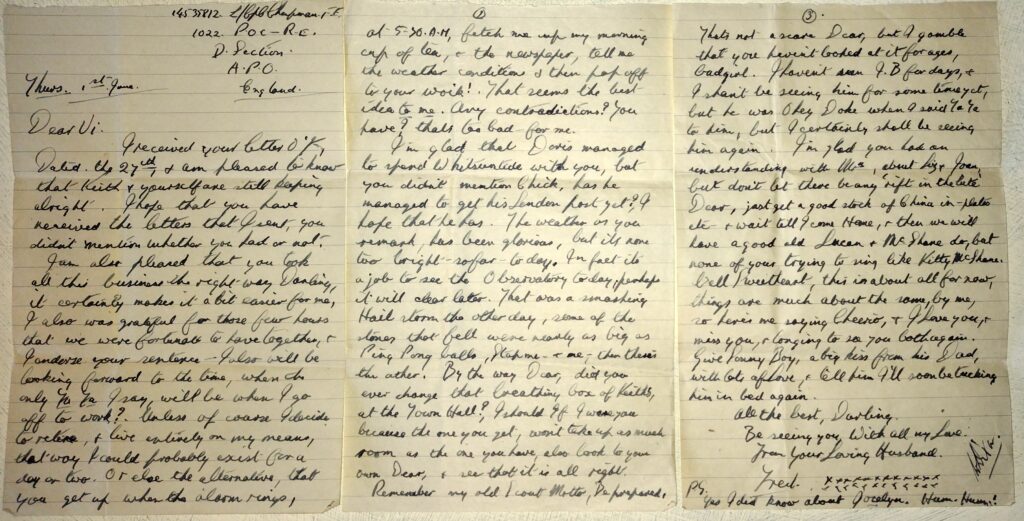 14535812 L/Cpl Chapman, F.
1022. P.O.C - R.E.
D. Section
A.P.O.
England.
Thurs. 1st June.
Dear Vi.
I received your letter O.K,
Dated the 27th, & am pleased to know
that Keith & yourself are still keeping
alright. I hope that you have
received the letters that I sent, you
didn't mention whether you had or not.
I am also pleased that you took
all this business the right way, Darling,
it certainly makes it a bit easier for me,
I also was grateful for those few hours
that we were fortunate to have together, &
I endorse your sentence - I also will be
looking forward to the time, when the
only Ta Ta I say, will be when I go
off to work?. Unless of course I decide
to retire, & live entirely on my means,
that way I could probably exist for a
day or two. Or else the alternative, that
you get up when the alarm rings,
2
at 5-30.A.M, fetch me up my morning
cup of tea, & the newspaper, tell me
the weather conditions & then pop off
to your work!. That seems the best
idea to me. Any contradictions? You
have? thats too bad for me.
I'm glad that Doris managed
to spend Whitsuntide with you, but
you didn't mention Chick, has he
managed to get his London post yet?, I
hope that he has. The weather as you
remark, has been glorious, but its none
too bright - sofar to-day. In fact its
a job to see the Observatory to day, perhaps
it will clear later. That was a smashing
Hail storm the other day, some of the
stones that fell were nearly as big as
Ping Pong balls, me - & me, - then theres
the other. By the way Dear, did you
ever change that breathing box of Keiths,
at the Town Hall?, I should if I were you
because the one you get, won't take up as much
room as the one you have, also look to your
own Dear, & see that it is all right.
Remember my old Scout Motto, Be prepared,
3.
Thats not a scare Dear, but I gamble
that you havent looked at it for ages,
badgirl. I havent seen J.B for days, &
I shan't be seeing him for some time yet,
but he was Okey Doke when I said Ta Ta
to him, but I certainly shall be seeing
him again. I'm glad you had an
understanding with Ma, about Liz & Joan,
but don't let there be any rift in the lute
Dear, just get a good stock of China in - plates
etc & wait till I come Home, & then we will
have a good old Lucan & McShane do, but
none of your trying to sing like Kitty McShane.
Well Sweetheart, this is about all for now,
things are much about the same, by me,
so heres me saying Cheerio, & I love you, &
miss you, & longing to see you both again.
Give Sonny Boy, a big kiss from his Dad,
with lots of love, & tell him I'll soon be tucking
him in bed again.
All the best, Darling.
Be seeing you, With all my Love.
From Your Loving Husband.
Fred. x x x x x x x x x
x x x x x x x x
P.S. Yes I did know about Jocelyn. Hum. Hum!